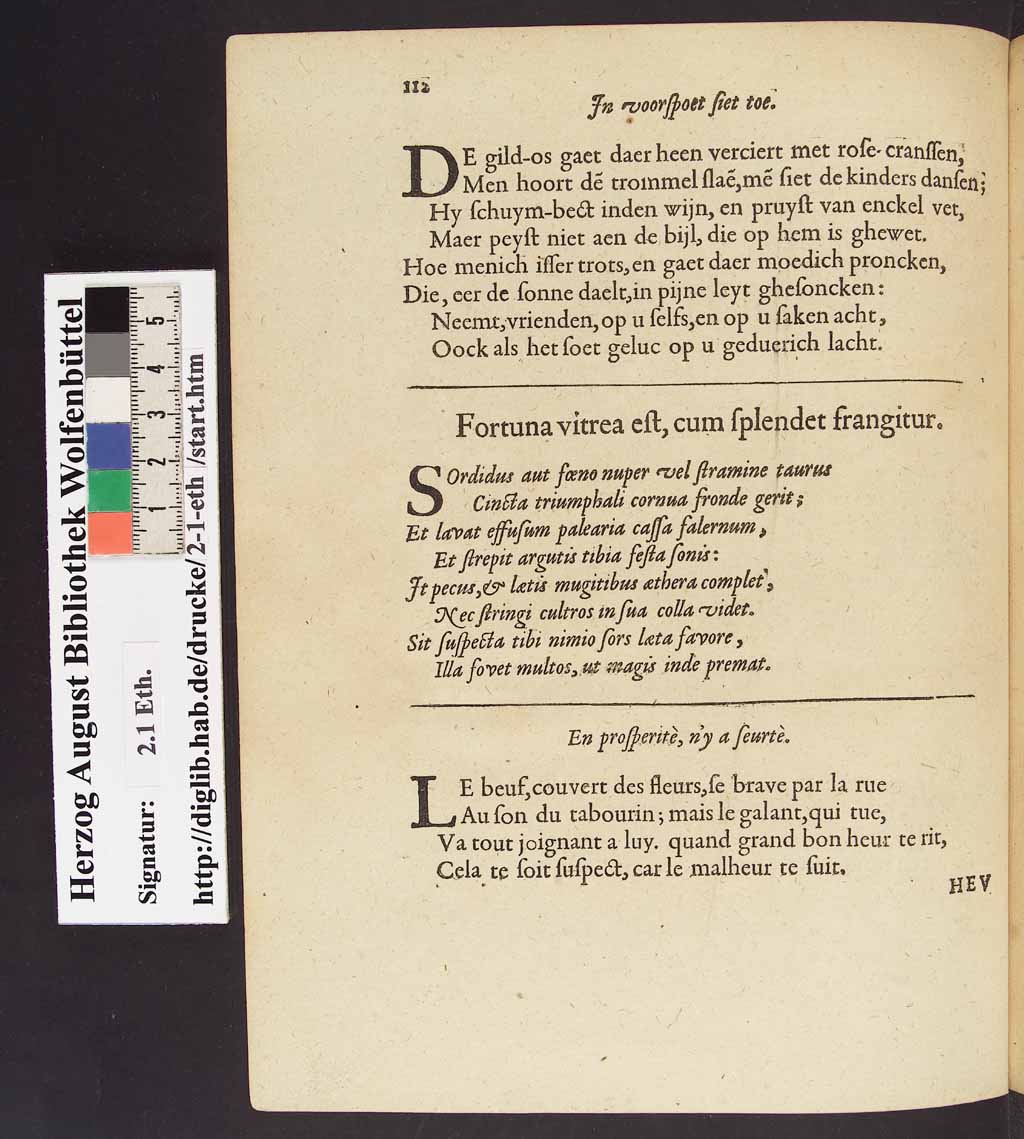 112
In voorſpoet ſiet toe.
DE gild-os gaet daer heen verciert met roſe-cranſſen,
Men hoort dē trommel ſlaē, mē ſiet de kinders danſen;
Hy ſchuym-bect inden wijn, en pruyſt van enckel vet,
Maer peyſt niet aen de bijl, die op hem is ghewet.
Hoe menich iſſer trots, en gaet daer moedich proncken,
Die, eer de ſonne daelt, in pijne leyt gheſoncken:
Neemt, vrienden, op u ſelfs, en op u ſaken acht,
Oock als het ſoet geluc op u geduerich lacht.
Fortuna vitrea eſt, cum ſplendet frangitur.
SOrdidus aut fœno nuper vel ſtramine taurus
Cincta triumphali cornua fronde gerit;
Et lavat effuſum palearia caſſa falernum,
Et ſtrepit argutis tibia feſta ſonis:
It pecus, & lætis mugitibus æthera complet,
Nec ſtringi cultros in ſua colla videt.
Sit ſuſpecta tibi nimio ſors læta favore,
Illa fovet multos, ut magis inde premat.
En proſperitè, n'y a ſeurtè.
LE beuf, couvert des fleurs, ſe brave par la rue
Au ſon du tabourin; mais le galant, qui tue,
Va tout joignant a luy. quand grand bon heur te rit,
Cela te ſoit ſuſpect, car le malheur te ſuit.
HEV
Herzog August Bibliothek Wolfenbüttel
Signatur: 2.1 Eth.
http://diglib.hab.de/drucke/2-1-eth /start.htm
5
4
3
2
1